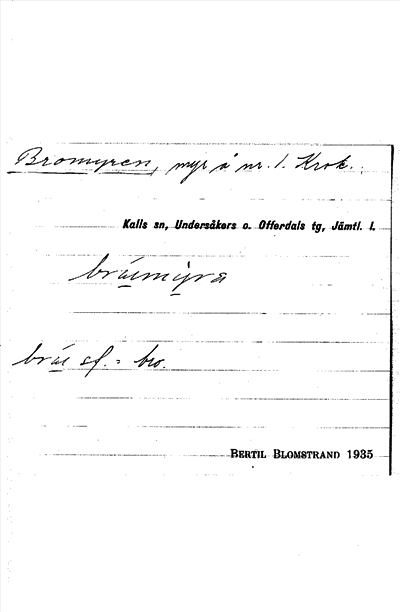 Bromyren, myr å nr. 1. Krok.
Kalls sn, Undersåkers o. Offerdals tg, Jämtl. l.
sf. = bro.
BERTIL BLOMSTRAND 1935